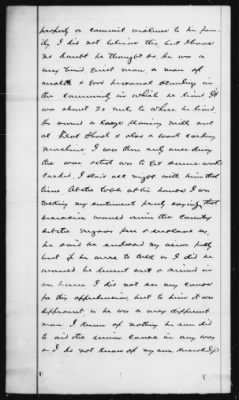 property or commit violence to his fam-
ily I did not believe this but I have
no doubt he thought so he was a
very timid quiet man a man of
wealth & good personal standing in
the community in which he lived It
was about 30 miles to where he lived
he owned a large flouring mill out
at Shoal & also a wool carding
machine I was there only once during
the war went up to get some wool
carded. I staid all night with him that
time At the table at his house I was
talking my sentiment freely saying that
secession would ruin the country
set the negroes free & enslave us,
he said he endorsed my views fully
but if he were to talk as I did he
would be burnt out & ruined in
an hour I did not see any cause
for this apprehension but to him it was
apparent as he was a very different
man I know of nothing he ever did
to aid the union cause in any way
& I do not know of my own knowledge